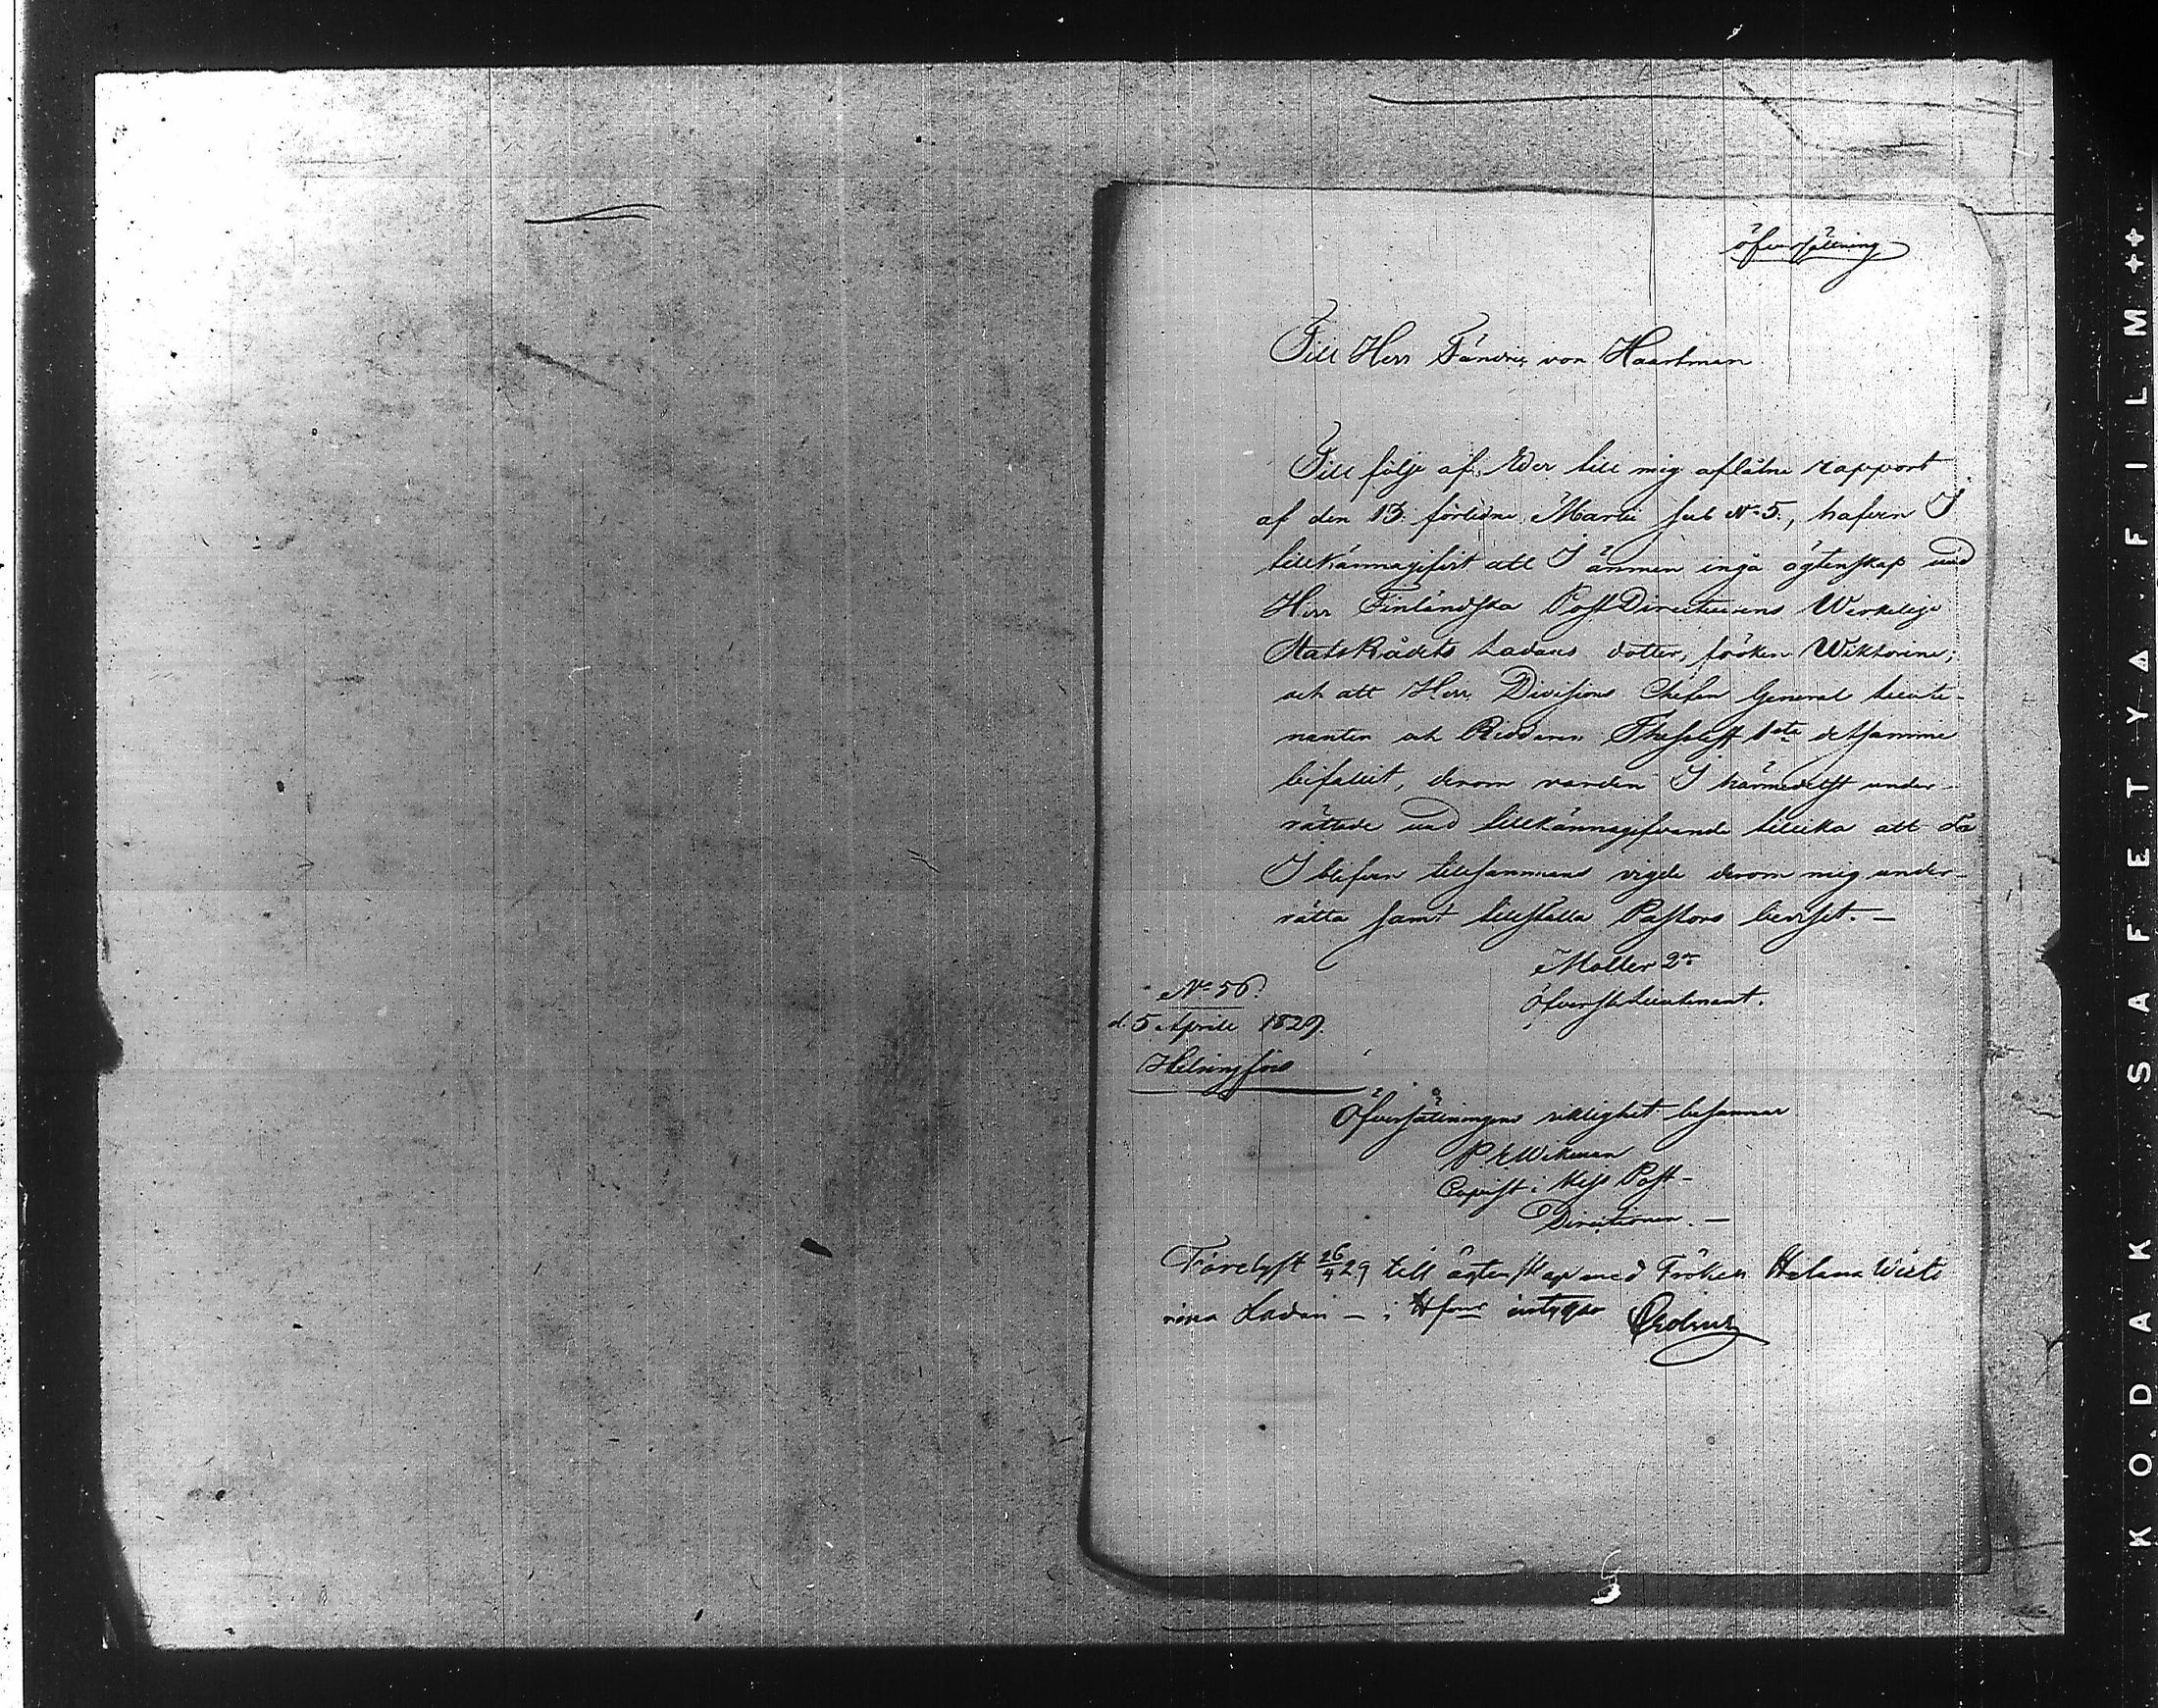 Öfversättning
Till Herr Fändric von Haartman
Till följe af Eder till mig aflåtne rapport
af den 13 förledne Martii sub No 5, hafven I
tillkännagifvit att I ämnen ingå ägtenskap med
Herr Finländska PostDirecteurens Werkelige
StatsRådets Ladaus dotter, fröken Wiktorine;
och att Herr Divisions Chefen General Lieute-
nanten och Riddaren Thesleff 1ste detsamma
bifallit, derom varden I härmedelst under-
rättade med tillkännagifvande tillika att då
I blifven tillsammans vigde derom mig under-
rätta samt tillställa Pastors beviset. —
Moller 2re
Öfverstelieutenant.
No 56.
d. 5 Aprill 1829.
Helsingfors
Öfversättningens riktighet besannar
P. E Wikman
Copist i Post-
Directionen. —
Förelyst 26/4 29 till ägtenskap med Fröken Helena Wikto
rina Ladau — i Hfors intygar
KODAK SAFETY A FILM ++